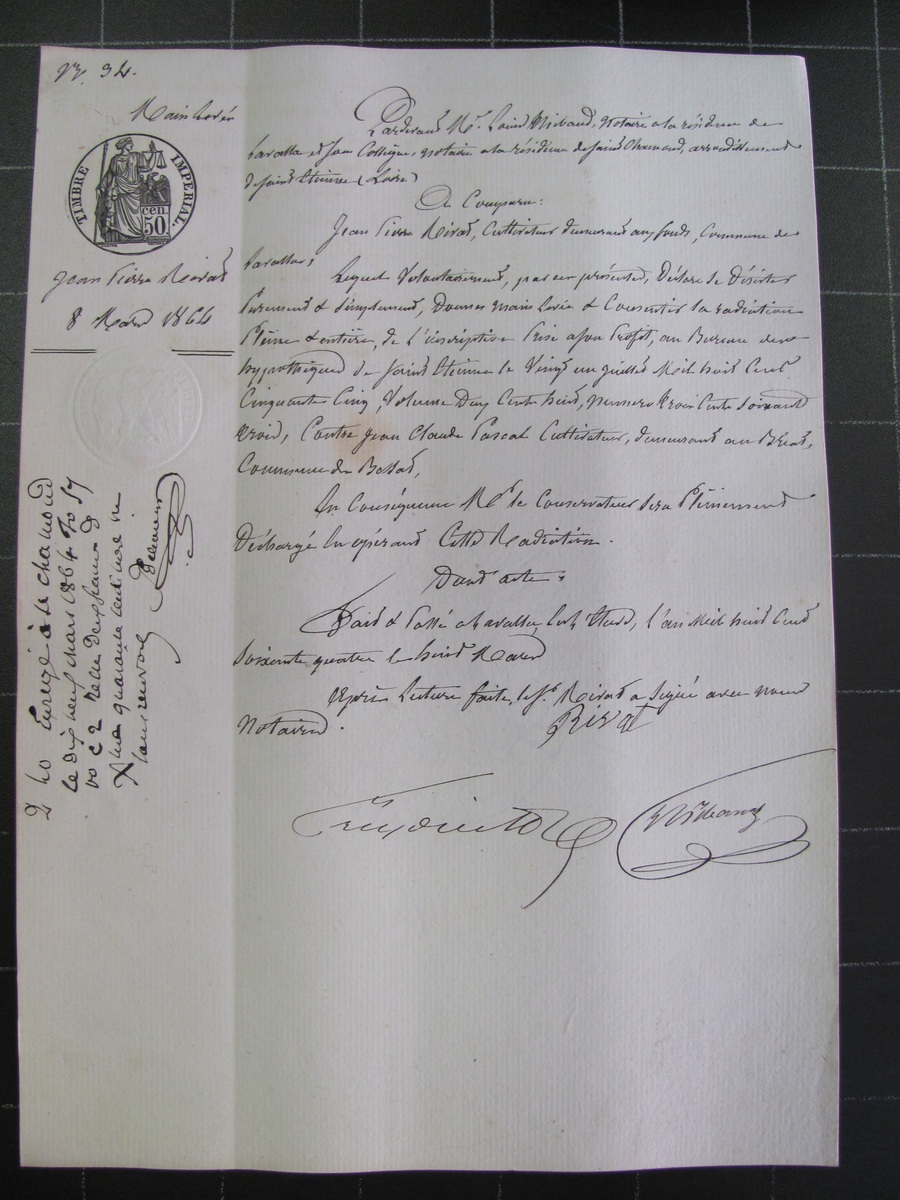 N°. 34.
Main Levée
TIMBRE IMPERIAL.
50 cen.
Jean Pierre Rivat
8 Mars 1864
Pardevant Me. Louis Thibaud, Notaire a la résidence de
Lavalla et son Collègue, notaire a la résidence de Saint Chamond, arrondissement
de Saint Etienne (Loire)
A Comparu:
Jean Pierre Rivat, Cultivateur demeurant aux fonds, Commune de
Lavalla;
Lequel Volontairement, par ces présentes, Déclare se Désister
Purement & simplement, Donner main Levée & Consentir la radiation
Pleine & entière, de l'inscription Prise a son Profit, au Bureau des
hypothèques de Saint Etienne le Vingt un juillet Mil huit Cent
Cinquante Cinq, Volume Deux Cents huit, numero trois Cents soixante
trois, Contre Jean Claude Pascal Cultivateur, demeurant au
Commune de Bessat,
En Conséquence Mr. le Conservateur sera Pleinement
Déchargé En opérant Cette Radiation.
Dont acte;
Fait & Passé a Lavalla, l'an Mil huit Cent
Soixante quatre le huit Mars
Après Lecture faite, le Sr. Rivat a Signé avec nous
Notaires.
Rivat
Enregé à St chamond
le dix neuf mars 1864 fo 57
vo c 2 Reçu deux francs &
quarante centimes